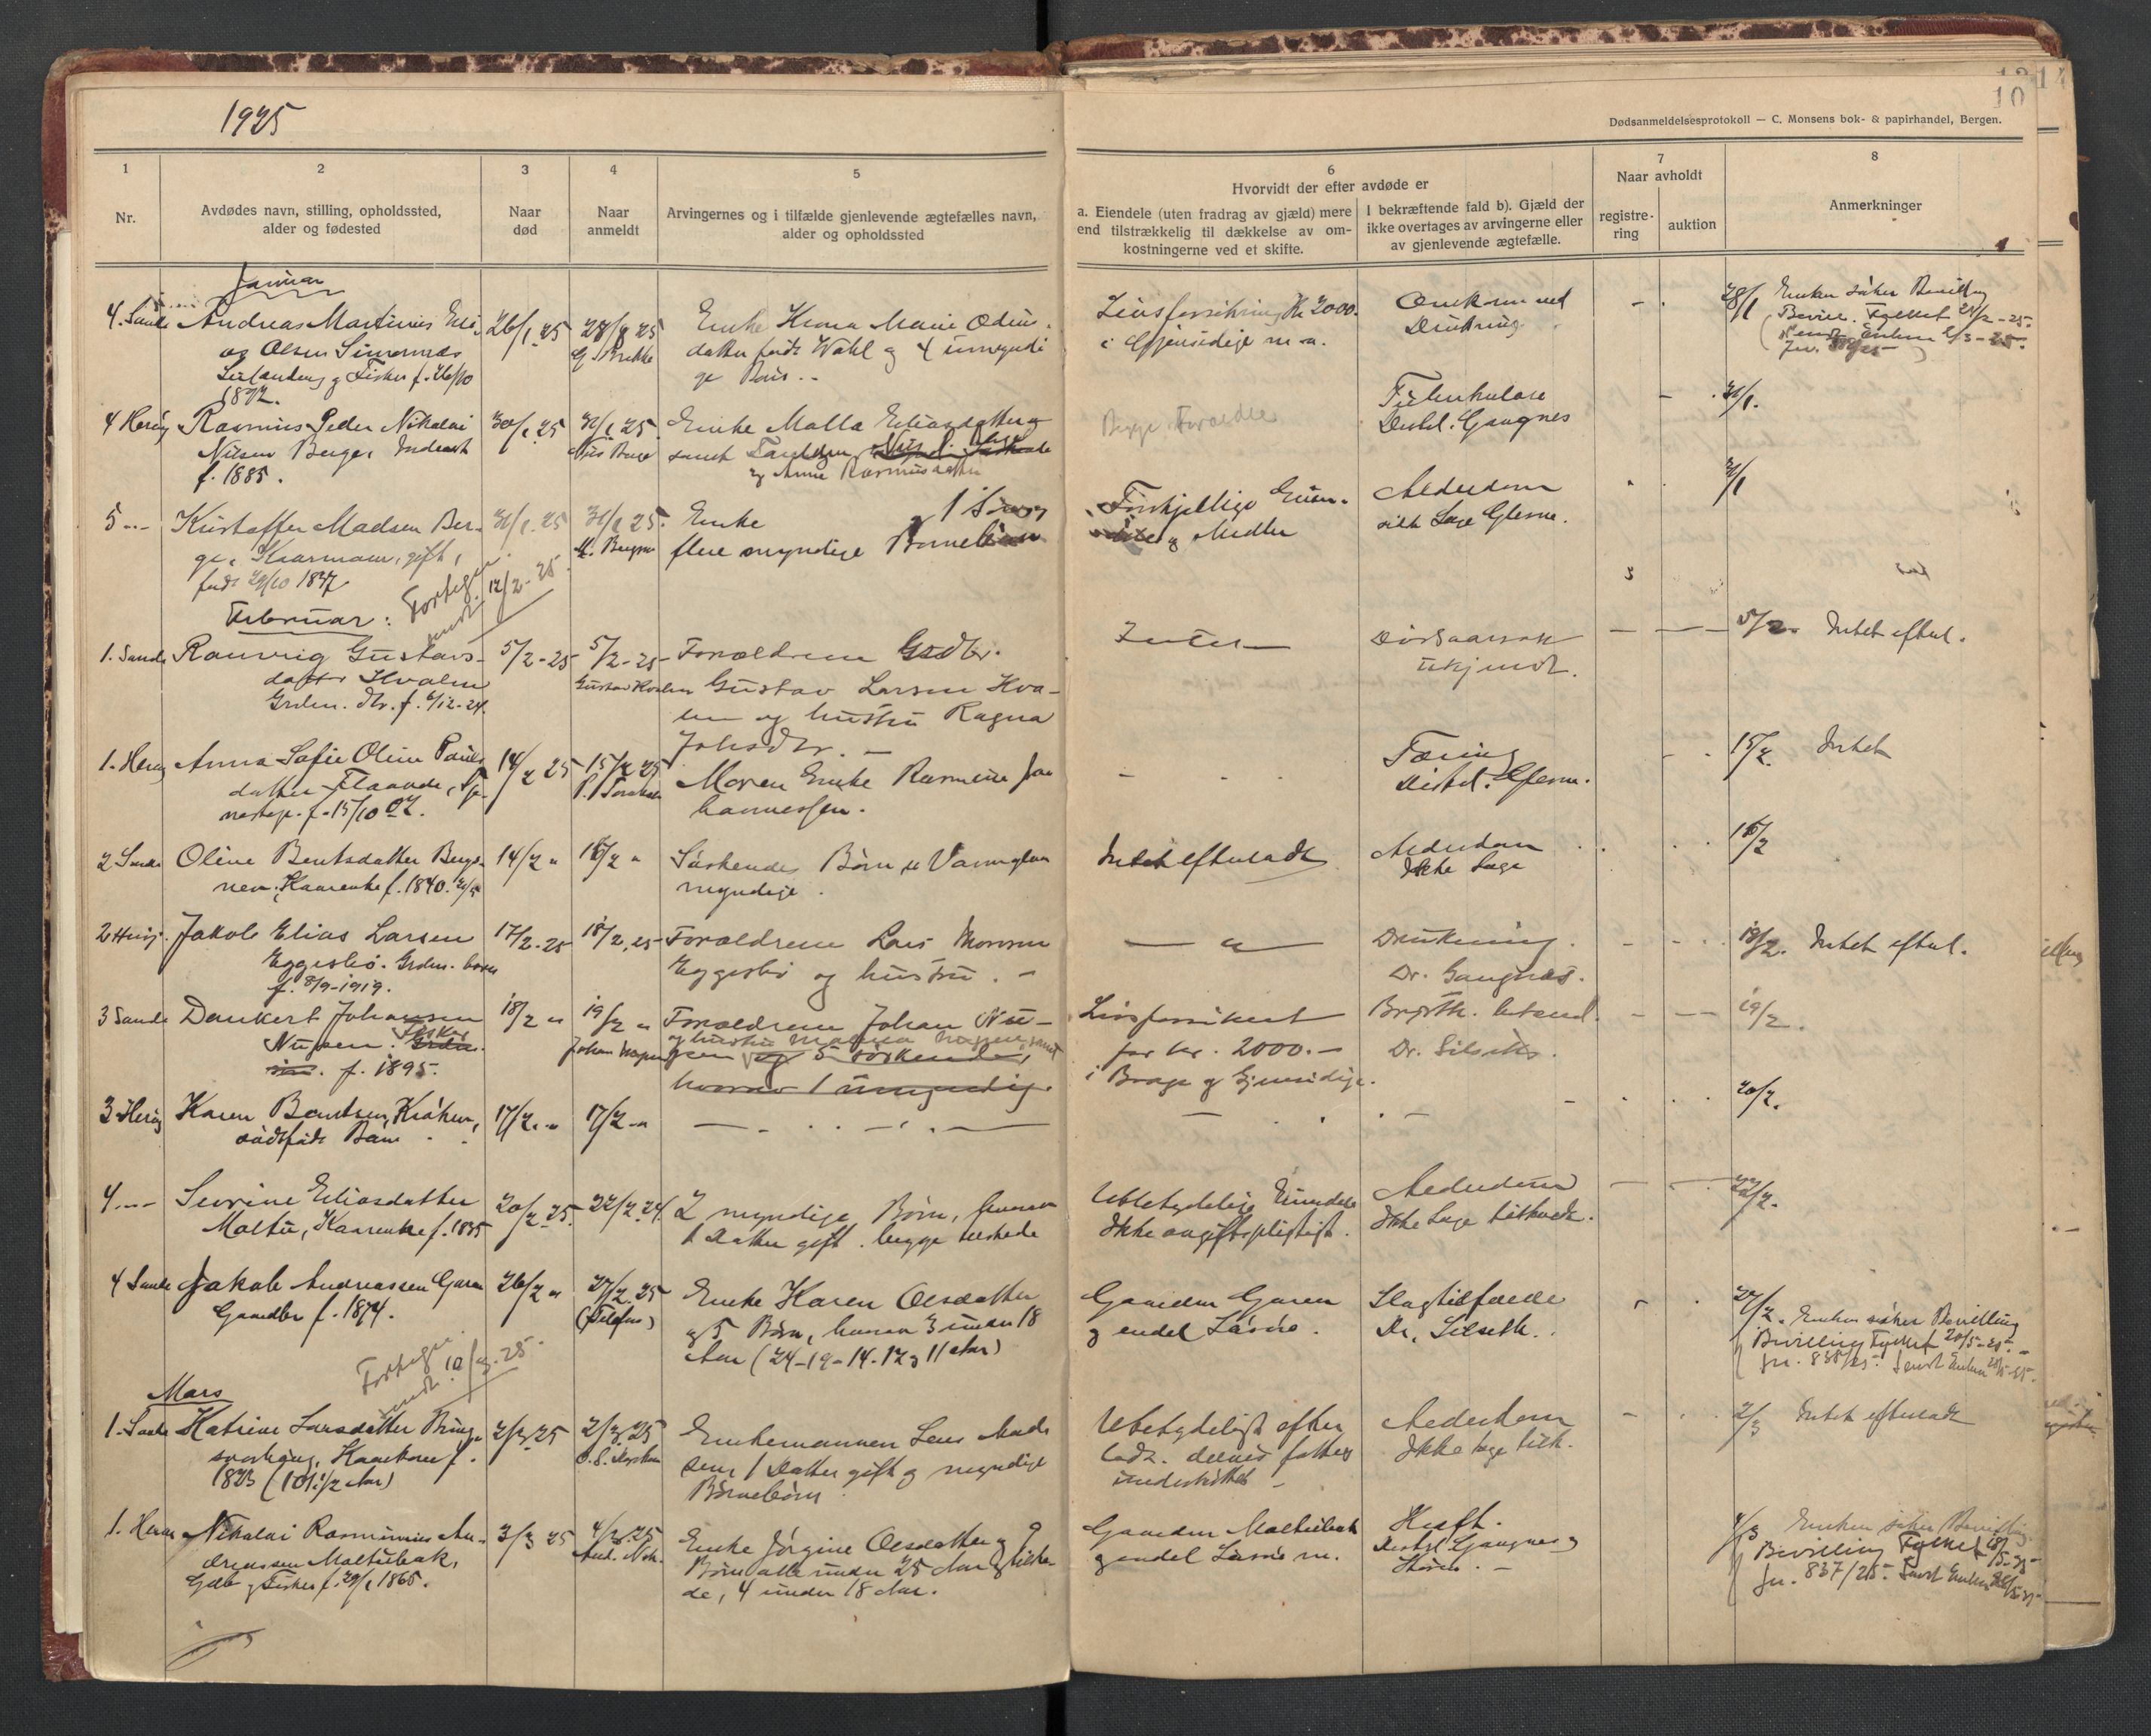 1925
10
Dødsanmeldelsesprotokoll — C. Monsens bok- & papirhandel, Bergen.
1
Nr.
2
Avdødes navn, stilling, opholdssted,
alder og fødested
3
Naar
død
4
Naar
anmeldt
5
Arvingernes og i tilfælde gjenlevende ægtefælles navn,
alder og opholdssted
6
Hvorvidt der efter avdøde er
a. Eiendele (uten fradrag av gjæld) mere
end tilstrækkelig til dækkelse av om-
kostningerne ved et skifte.
I bekræftende fald b). Gjæld der
ikke overtages av arvingerne eller
av gjenlevende ægtefælle.
7
Naar avholdt
registre-
ring
auktion
8
Anmerkninger
Januar
4. Sande Andreas Martinus
og Olsen
og Fisker f. 26/10
1892.
26/1 25
28/1 25
Enke Marie
datter født Wahl og 4 umyndi
ge
Livsforsikring Kr 2000.
i Gjensidige m.a.
Omkom ved
Drukning
28/1 Enken søker Bevilling
Bevill. Fylket 28/2-25.
4 Herøy Rasmus Peder Nikolai
Nilsen Berge,
f. 1885.
30/1 25
31/1 25
Nils Berge
Enke Malla Eliasdatter
samt Foreldren
og Anne Rasmusdatter
Begge Foreldre
Tuberkulose
Distrl. Gangnes
31/1.
5 -- Kristoffer Madsen Ber-
ge, Kaarmann, gift,
født 29/10 1837
31/1 25
31/1 25.
Enke og 1 Søn og
flere myndige Børnebørn
Forskjellige
og Midler
Alderdom
Læge Glerne.
31/1
Februar:
12/2-25.
1. Sande Ranveig Gustavs-
datter Kvalen
Grdm. dtr. f. 6/12-24.
5/2-25
5/2-25
Gustav Kvalen
Forældrene Grdbr.
Gustav Larsen Kva-
len og hustru Ragna
Johsdtr. —
Intet —
Dødsaarsak
ukjendt.
5/2. Intet efterl.
1. Herøy Anna Sofie Oline Pauls
datter Flaavde,
f. 15/10 07.
14/2 25
15/2 25
Moren Enke Rasmine Jo
hannessen.
Tæring
Distrl. Glerne.
15/2. Intet
2 Sande Oline Bentsdatter Bergs-
nev, Kaarenke f. 1840.
14/2 "
16/2 "
Søskendes Børn
myndige.
Intet efterladt
Alderdom
Ikke Læge
16/2
2 Herøy. Jakob Elias Larsen
Eggesbø. Grdm. barn
f. 8/9-1919.
17/2-25
18/2, 25
Forældrene Lars Monsen
Eggesbø og hustru. -
— " —
Drukning.
Dr. Gangnæs.
18/2. Intet efterl.
3 Sande Dankert Johansen
Nupen. Fisker
f. 1895.
18/2 "
19/2 "
Johan Nupen
Forældrene Johan Nu-
og hustru
pen og 5 søskende,
hvorav 1 umyndig.
Livsforsikret
for kr. 2000.—
i Brage og Gjensidige.
Brysth. betænd.
Dr. Silseth.
19/2.
3 Herøy Karen Bentsen, Kråken,
dødfødt Barn
17/2. "
17/2 "
20/2.
4 -- Sevrine Eliasdatter
Moltu, Kaarenke f. 1835
20/2 25.
22/2 24.
2 myndige Børn, hvorav
1 datter gift. begge tilstede
Ubetydelige Eiendele
Ikke avgiftspligtigt.
Alderdom
Ikke Læge tilkaldt.
22/2.
4 Sande Jakob Andreassen Garen
Gaardbr f. 1874.
26/2 "
27/2. 25
(Telefon)
Enke Karen Olsdatter
og 5 Børn, hvorav 3 under 18
Aar (24-19-14-12 og 11 Aar)
Gaarden Garen
og endel Løsøre.
Slagtilfælde
Dr. Silseth.
27/2. Enken søker Bevilling
Bevilling Fylket 20/5-25. -
Jr. 838/25. Sendt Enken
10/3-25.
Mars
1. Sande Katrine Larsdatter
Kaarkone f.
1823 (101 1/2 Aar)
2/3 25
2/3 25
Enkemannen Lars Mads
sen, 1 Datter gift og myndige
Børnebørn
Ubetydeligt efter
ladt. delvis fattig
understøttet -
Alderdom
Ikke læge tilk.
2/3 Intet efterladt
1. Herøy Nikolai Rasmus An-
dreassen Moltubak,
Gdbr og Fisker f. 29/1 1865.
3/3 25
4/3 25
Enke Jørgine Olsdatter og 9
Børn alle under 25 Aar og tilste
de, 4 under 18 Aar.
Gaarden Moltubak
og endel Løsøre m.
Kræft.
Distrl Gangnes og
4/3 Enken søker Bevilling
Bevilling Fylket
Jr. 837/25. Sendt Enken